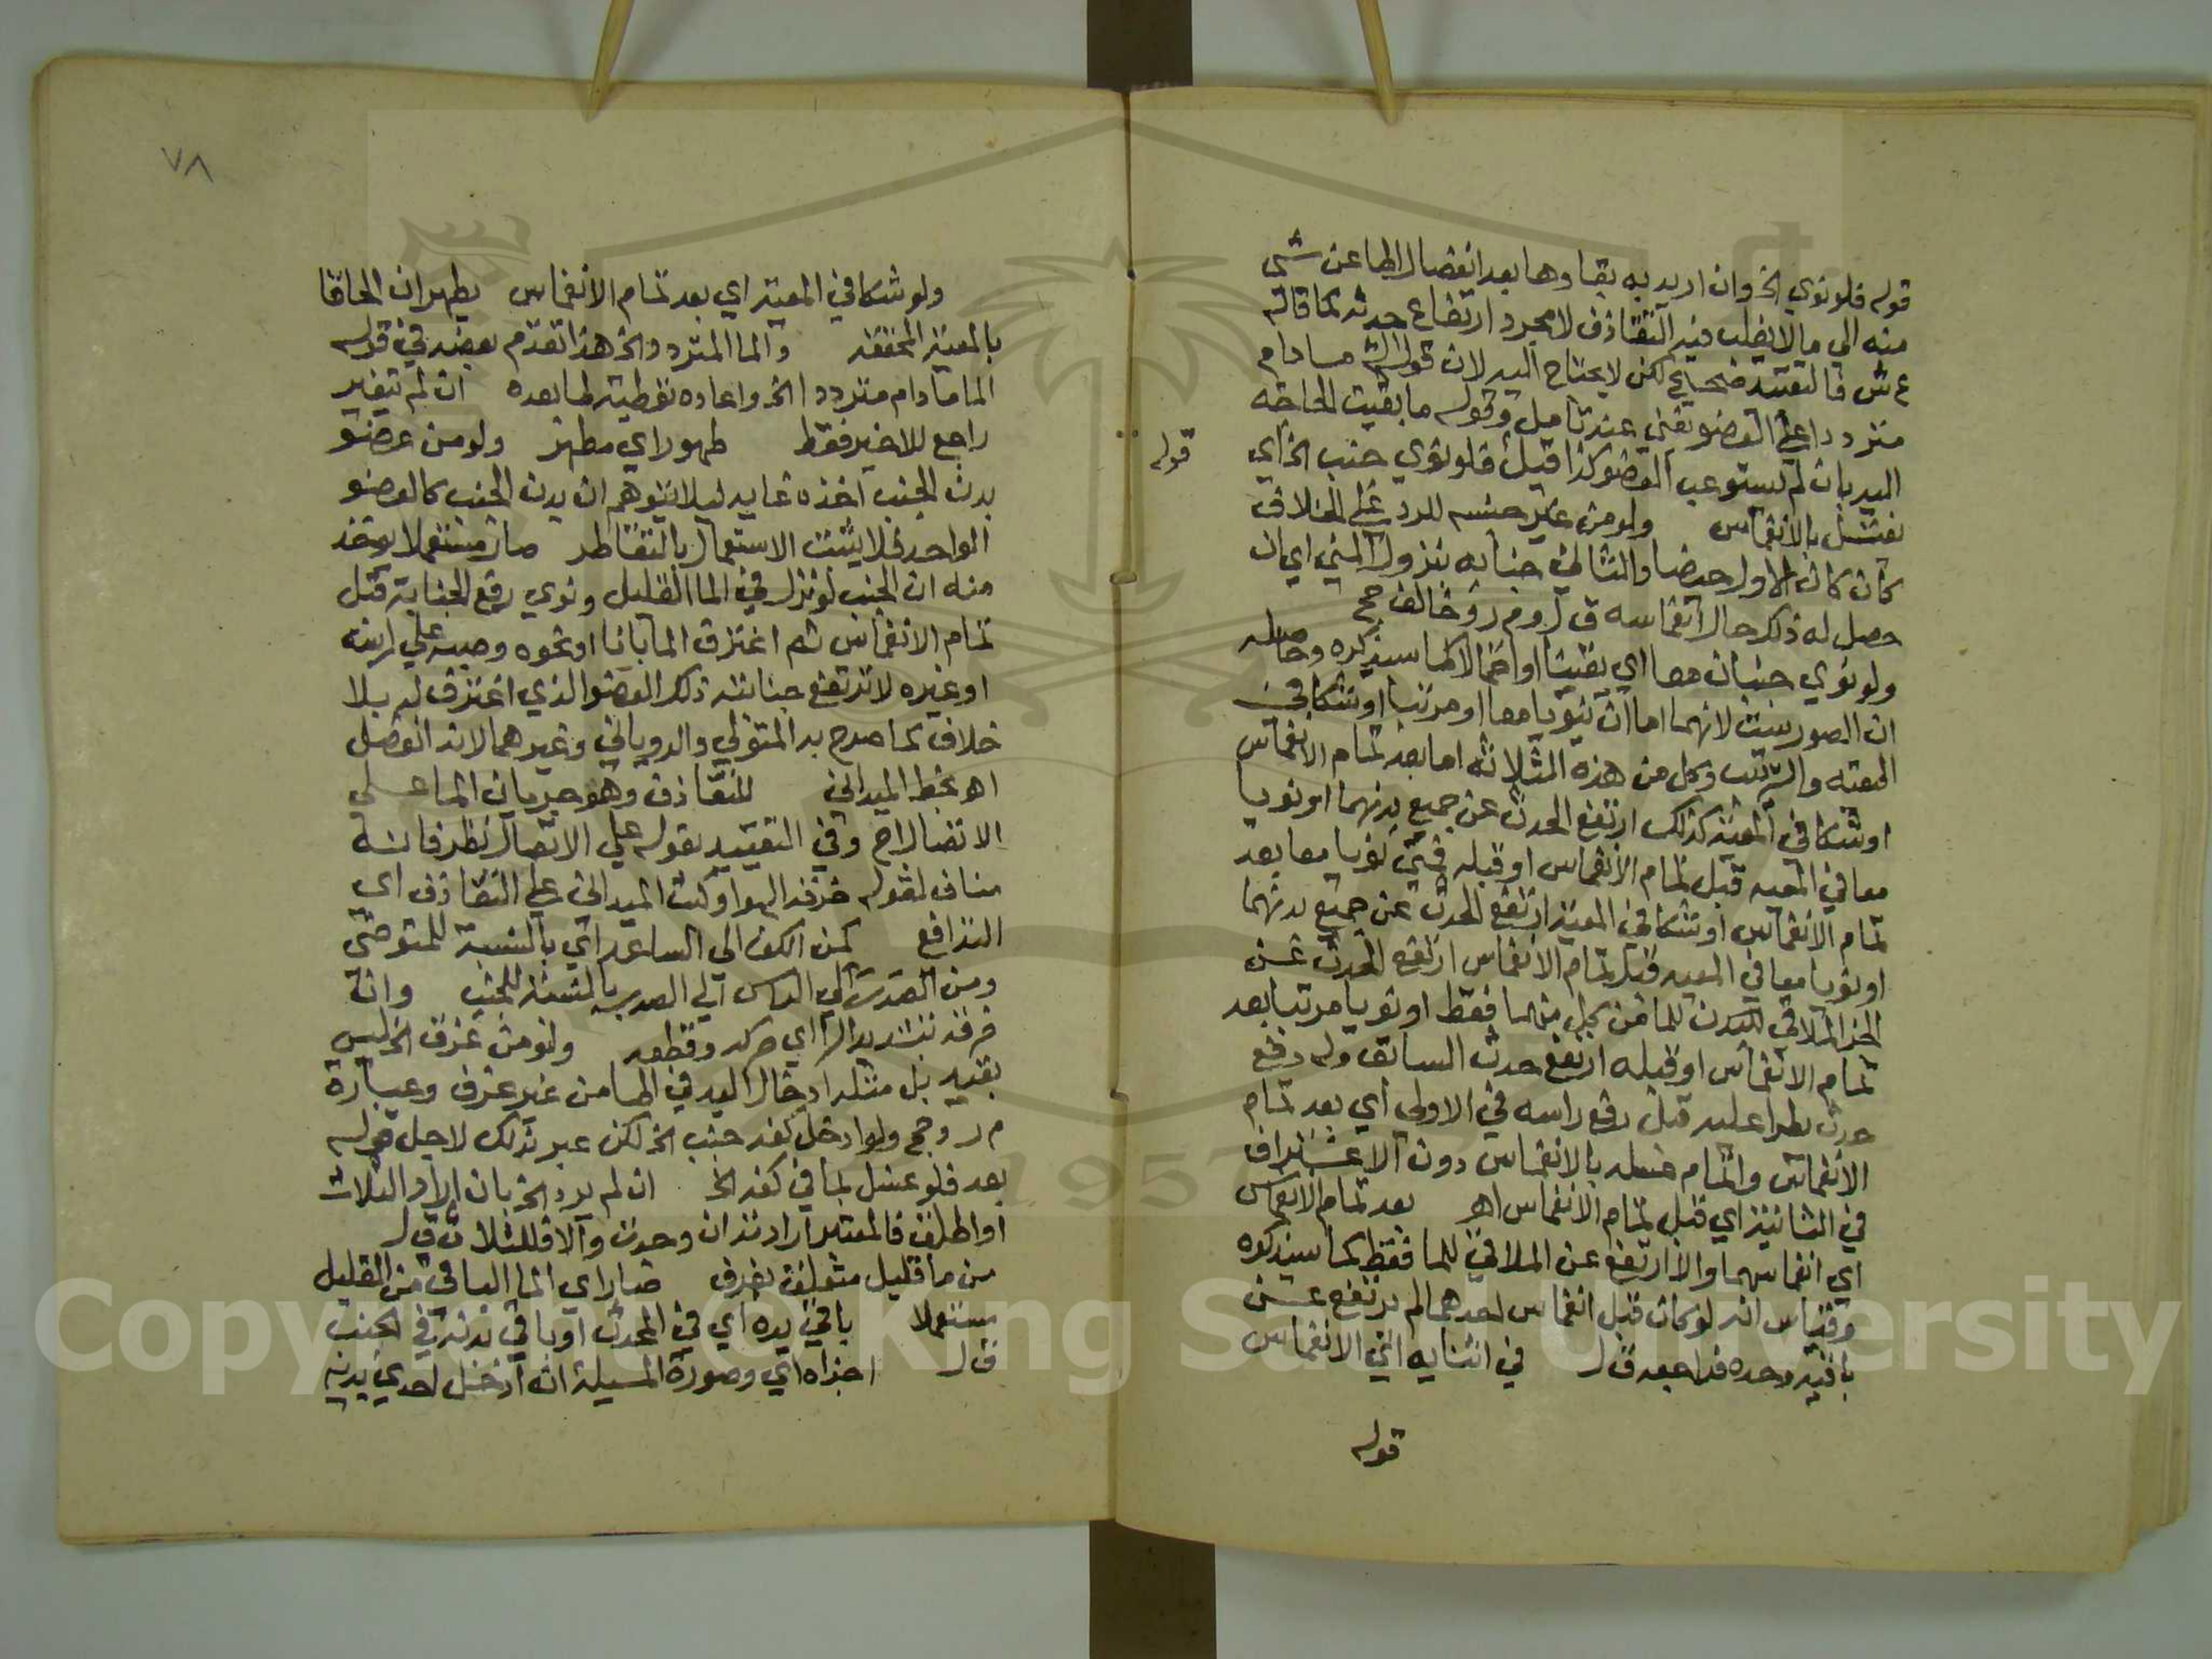 قوله فلو نوى الخ وان اريد به بقاوها بعد انفصال الما عن شي
منه الي ما لا يغلب فيه التقاذف لا مجرد ارتفاع حدثه كما قاله
ع ش فالتقييد صحيح لكن لا يحتاج اليه لان قول الش مادام
مترددا علي العضو يغني عند تامل وقوله ما بقيت الحاجة
اليه بان لم يستوعب العضو كذا قيل فلو نوى جنب الخ اي
يغتسل بالانغماس ولو من غير جنسه للرد علي الخلاف
كان كان الاول حيضا والثاني جنابه بنزول المني اي ان
حصل له ذلك حال انغماسه ق ل وم ر وخالف حج
ولو نوى جنبان معا اي يقينا او احتمالا كما سيذكره وحاصله
ان الصور ست لانهما اما ان ينويا معا او مرتبا او شكا في
المعيه والترتيب وكل من هذه الثلاثه اما بعد تمام الانغماس
او شكا في المعية كذلك ارتفع الحدث عن جميع بدنهما او نويا
معا في المعيه قبل تمام الانغماس او قبله فمتى نويا معا بعد
تمام الانغماس او شكا في المعية ارتفع الحدث عن جميع بدنهما
او نويا معا في المعيه قبل تمام الانغماس ارتفع الحدث عن
الجزا الملاقي للبدن للما من كل منهما فقط او نويا مرتبا بعد
تمام الانغماس او قبله ارتفع حدث السابق وله رفع
حدث يطرا عليه قبل رفع راسه في الاولى اي بعد تمام
الانغماس واتمام غسله بالانغماس دون الاغتراف
في الثانية اي قبل تمام الانغماس اهـ بعد تمام الانغماس
اي انغماسهما والا ارتفع عن الملاقي للما فقط كما سيذكره
وقياس انه لو كان قبل انغماس احدهما لم يرتفع عن
باقيه وحده فراجعه ق ل في اثنايه اي الانغماس
قوله
قوله
٧٨
ولو شكا في المعية اي بعد تمام الانغماس يطهران الحاقا
بالمعية المحققة والما المتردد الخ هذا تقدم بعضه في قوله
الما مادام متردد الخ واعاده توطية لما بعده ان لم يتغير
راجع للاخير فقط طهور اي مطهر ولو من عضو
بدن الجنب اخذه غايه ليلا يتوهم ان بدن الجنب كالعضو
الواحد فلا يثبت الاستعمال بالتقاطر صار مستعملا يوخذ
منه ان الجنب لو نزل في الما القليل ونوى رفع الجنابة قبل
تمام الانغماس ثم اغترف الما بانا او نحوه وصبه علي راسه
او غيره لا ترتفع جنابته ذلك العضو الذي اغترف له بلا
خلاف كما صرح به المتولي والروياني وغيرهما لانه انفصل
اهـ بخط الميداني للتقاذف وهو جريان الما علي
الاتصال اح وفي التقييد بقوله علي الاتصال نظر فانه
مناف لقوله خرقه الهوا وكتب الميداني علي التقاذف اي
التدافع كمن الكف الى الساعد اي بالنسبة للمتوضي
ومن الصدر الي الراس الي الصدر بالنسبة للجنب وان
خرقه بتشديد الرا اي حركه وقطعه ولو من غرف الخ ليس
بقيد بل مثله ادخال اليد في الما من غير غرف وعبارة
م ر وحج ولو ادخل كفه جنب الخ لكن عبر بذلك لاجل قوله
بعد فلو غسل بما في كفه الخ ان لم يرد الخ بان اراد الثلاث
او اطلق فالمعتبر اراد تذان وحدث والا فللثلاث ق ل
من ما قليل متعلق بغرف صار اي الما الباقي من القليل
مستعملا باقي يده اي في المحدث او باقي بدنه في الجنب
ق ل اجزاه اي وصورة المسيلة ان ادخل احدى يديه